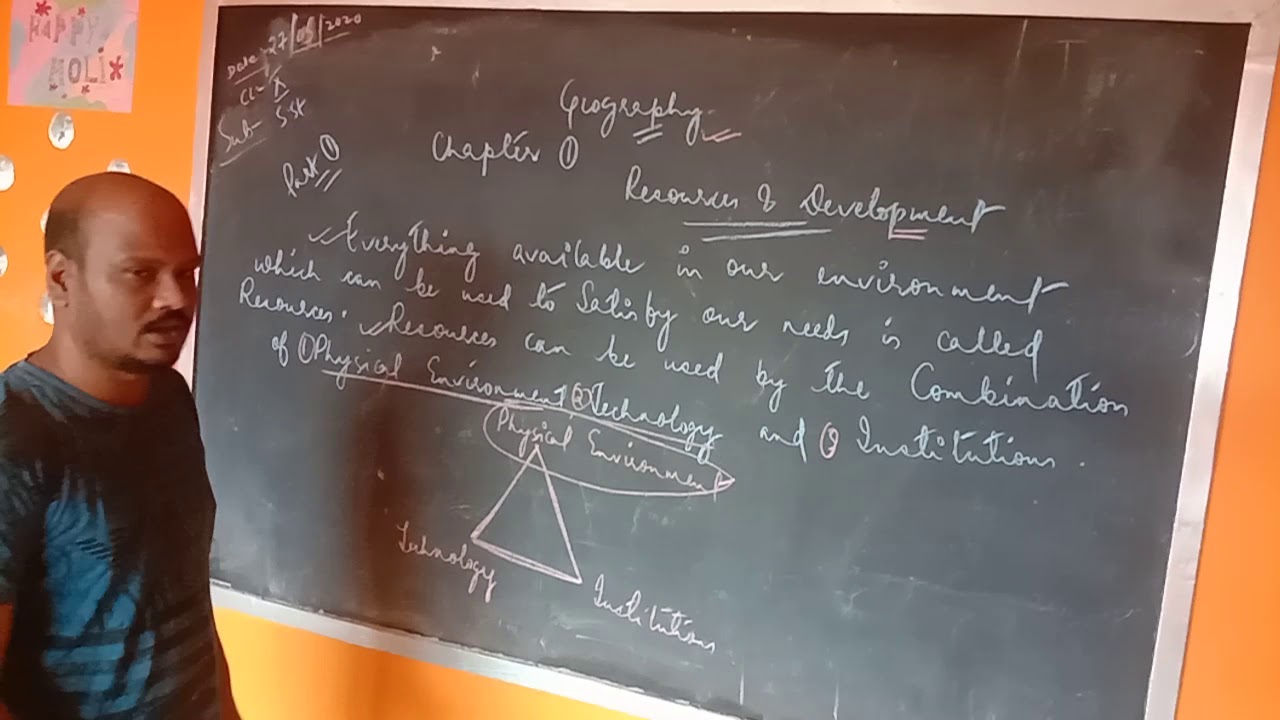 HAPPY
HOLI
Date:- 27/05/2020
Cl- X
Sub- S.St
Geography
Chapter ①
Part ①
Resources & Development
Everything available in our environment
which can be used to Satisfy our needs is called
Resources. Resources can be used by the Combination
of ① Physical Environment ② Technology and ③ Institutions.
Physical Environment
Technology
Institutions